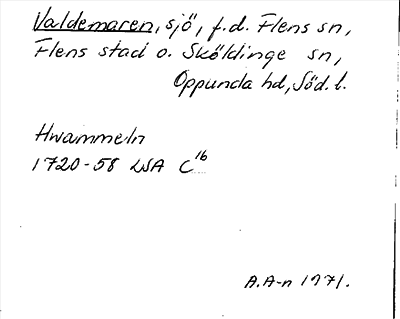 Valdemaren, sjö, f.d. Flens sn,
Flens stad o. Sköldinge sn,
Oppunda hd, Söd. l.
Hwammeln
1720-58 LSA C16
A.A-n 1971.